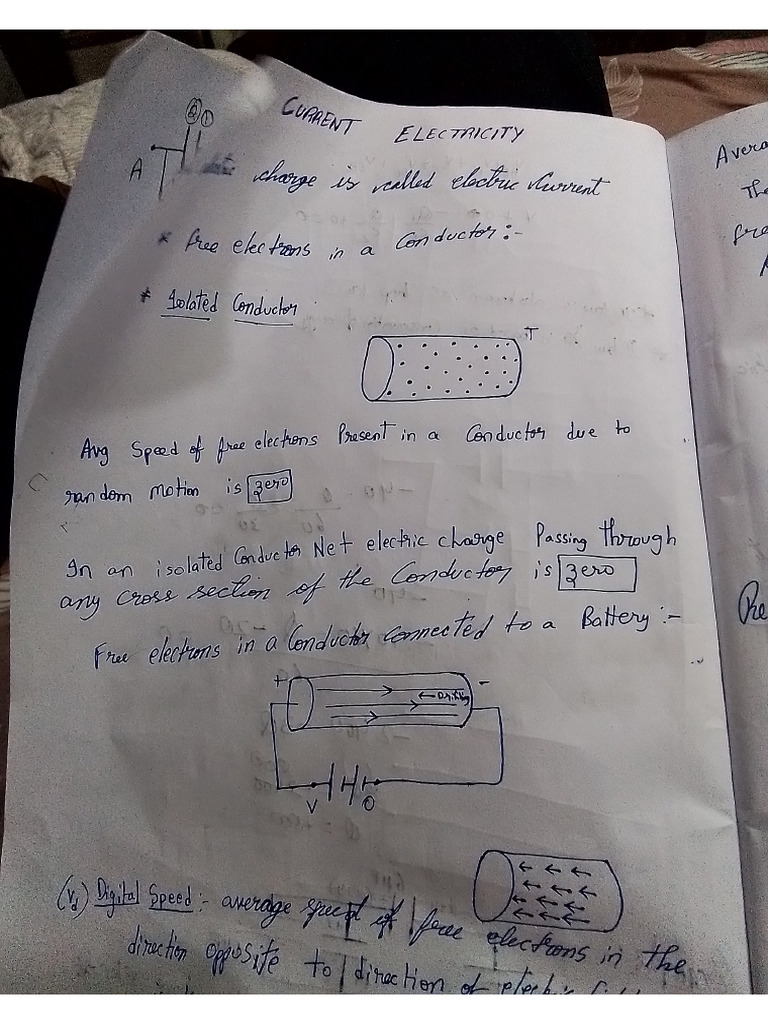 CURRENT ELECTRICITY
A
charge is called electric current
* free electrons in a Conductor:-
* Isolated Conductor
T
Avg Speed of free electrons Present in a Conductor due to
random motion is zero
In an isolated Conductor Net electric charge Passing through
any cross section of the Conductor is zero
Free electrons in a Conductor connected to a Battery:-
+ -
← Drifting
V O
(Vd) Digital Speed:- average speed of free electrons in the
direction opposite to direction of electric
Avera
The
fre
Re